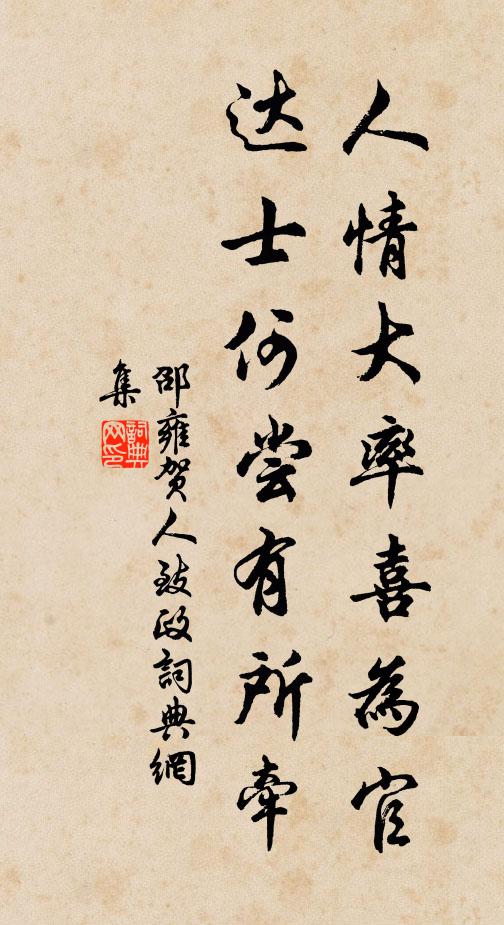 人情大率喜為官
达士何尝有所牵
邵雍贺人致政詞典網
集
詞典
网印